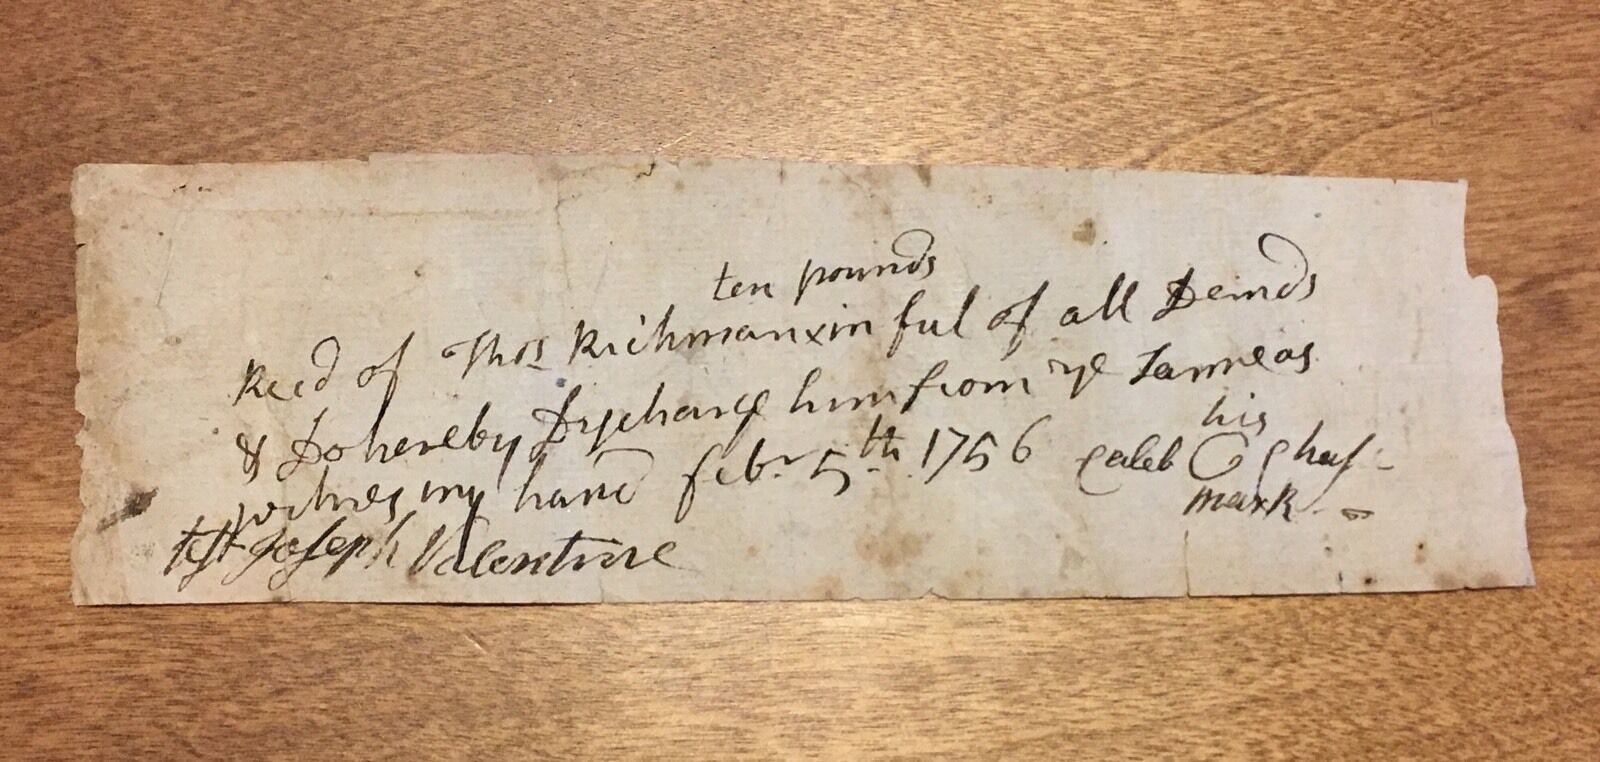 ten pounds
Recd of Thos Richman x in ful of all Demds
& Do hereby Dyscharge him from ye Sameas
witnes my hand febr 5th 1756 Caleb C
his
mark
test Joseph Valentine